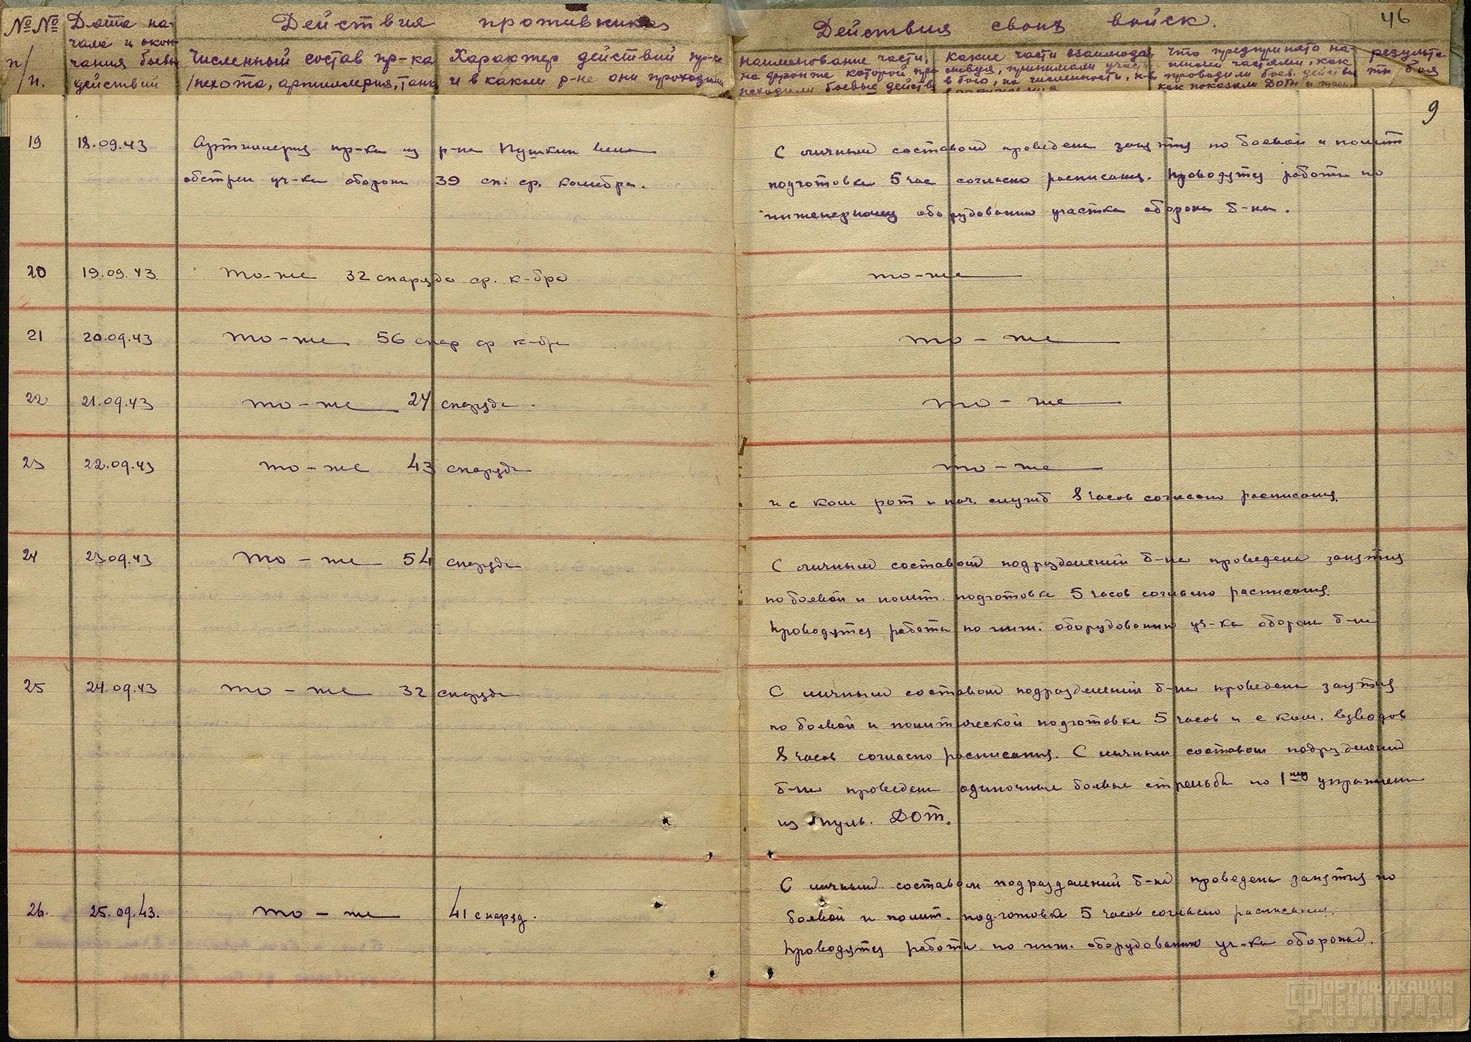 №№ п/п.
Дата начала и окончания боевы действий
Действия противника
Действия своих войск.
46
Численный состав пр-ка /пехота, артиллерия, танк
Характер действий пр-ка и в каком р-не они проходили
наименование части, на фронте которой про исходили боевые действ
какие части взаимодей ствуя, принимали участ. в бою, их численность,
что предпринято на шими частями, как проводили боев. действи как показали ДОТы и
результа ты боя
9
19 18.09.43 Артиллерия пр-ка из р-на Пушкин вела
обстрел уч-ка обороны 39 сн. ср. калибра.
С личным составом проведены занятия по боевой и полит
подготовке 5 час согласно расписания. Проводятся работы по
инженерному оборудованию участка обороны б-на.
20 19.09.43 то-же 32 снаряда ср. к-бра то-же
21 20.09.43 то-же 56 снар ср к-бр то-же
22 21.09.43 то-же 24 снаряда то-же
23 22.09.43 то-же 43 снаряда то-же
и с ком рот и нач. служб 8 часов согласно расписания.
24 23.09.43 то-же 54 снаряда
С личным составом подразделений б-на проведены занятия
по боевой и полит. подготовке 5 часов согласно расписания.
Проводятся работы по инж. оборудованию уч-ка обороны б-на
25 24.09.43 то-же 32 снаряда
С личным составом подразделений б-на проведены занятия
по боевой и политической подготовке 5 часов и с ком. взводов
8 часов согласно расписания. С личным составом подразделений
б-на проведены одиночные боевые стрельбы по 1 му упражнению
из пуль. ДОТ.
26. 25.09.43. то-же 41 снаряд.
С личным составом подразделений б-на проведены занятия по
боевой и полит. подготовке 5 часов согласно расписания.
Проводятся работы по инж. оборудованию уч-ка обороны.
ФОРТИФИКАЦИЯ
ЛЕНИНГРАДА